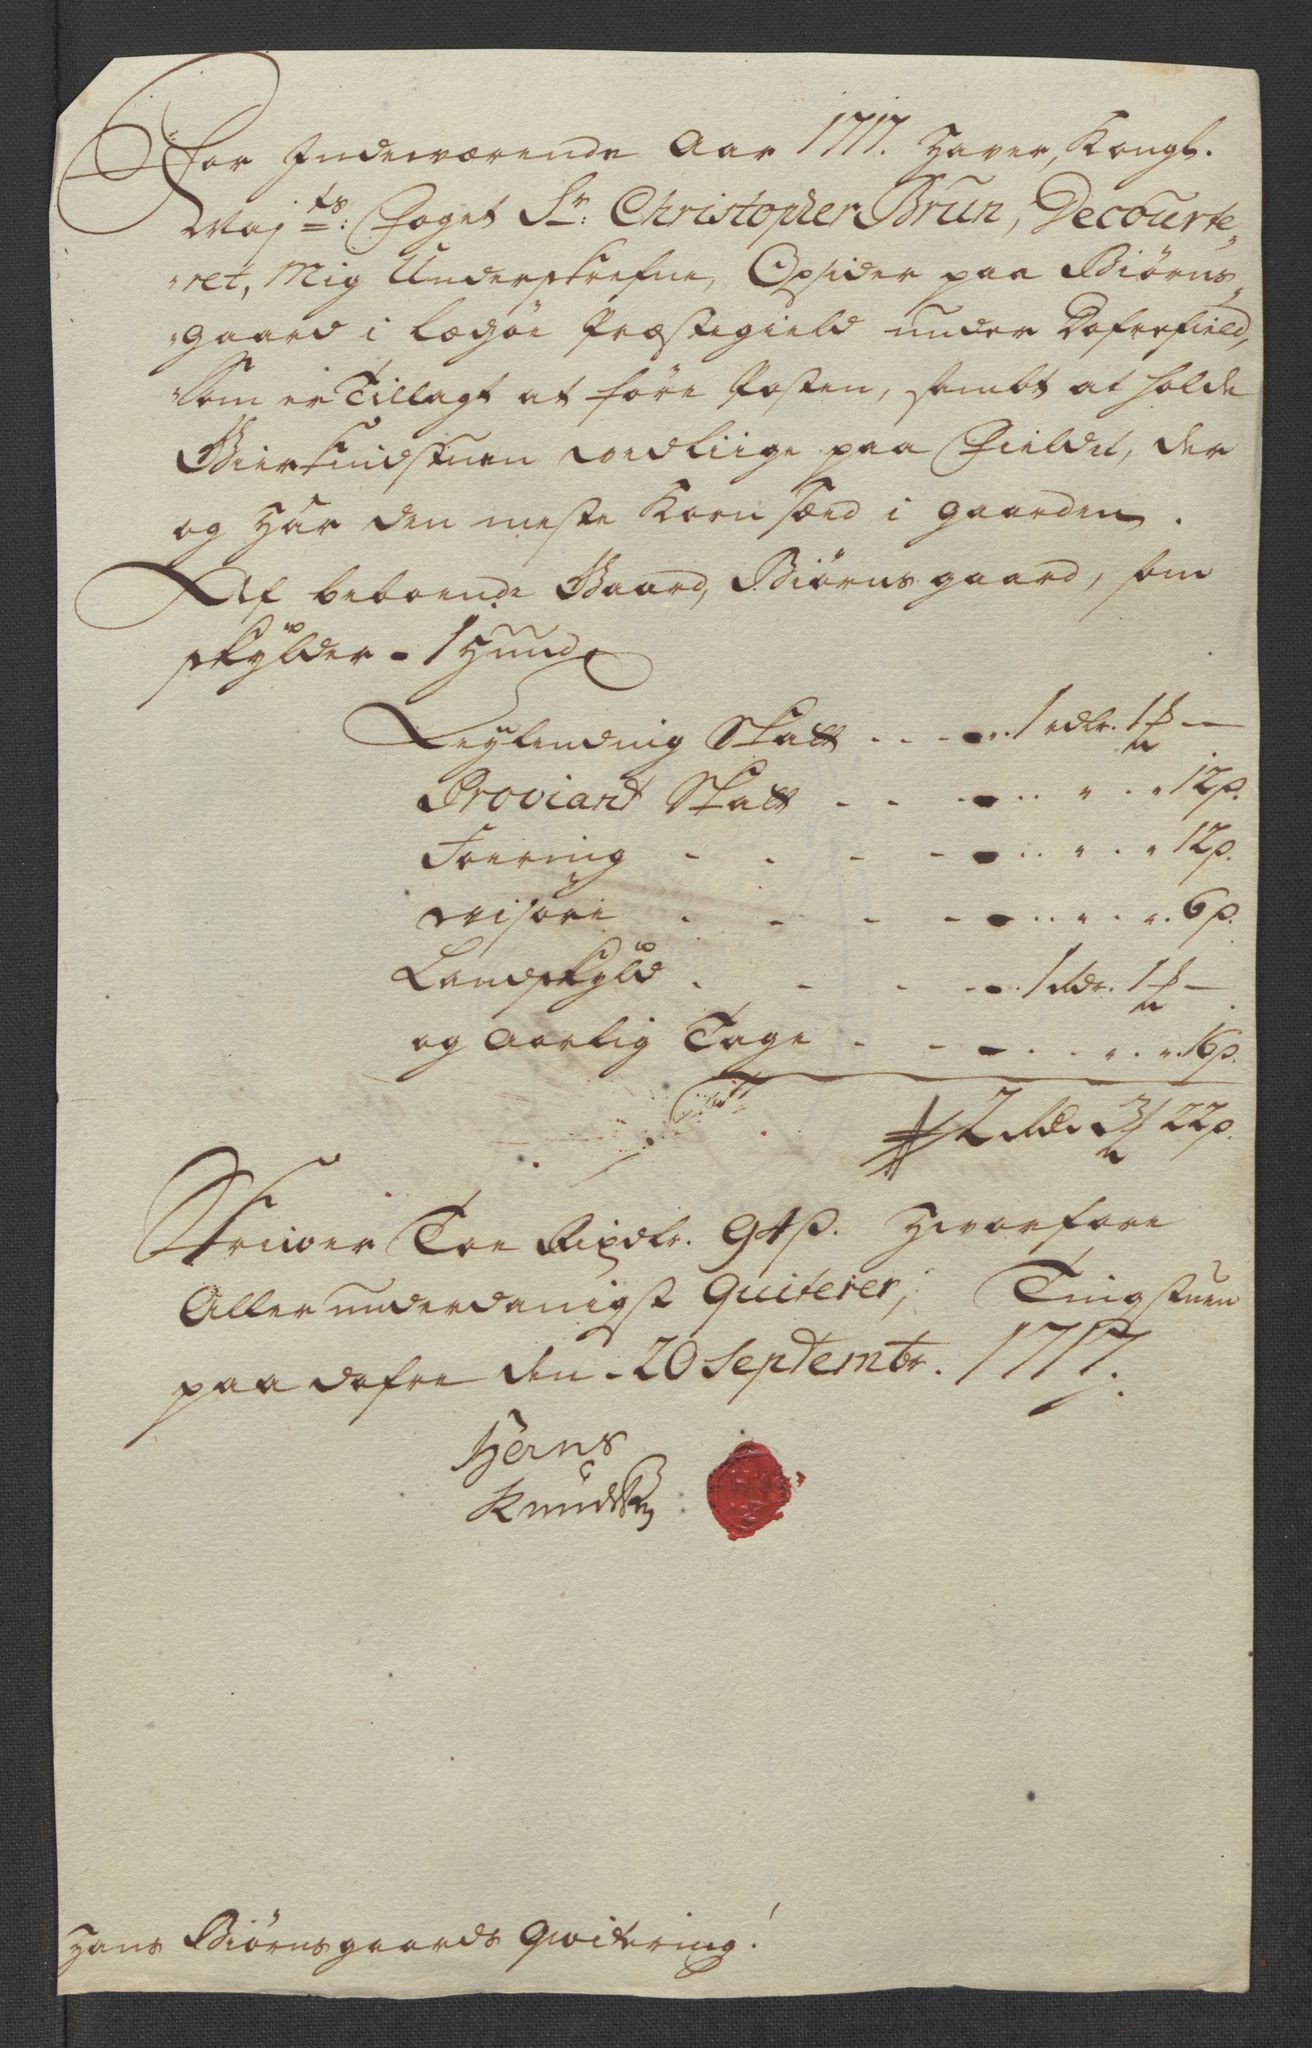 For Indeværende Aar 1717. Haver, Kongl.
Maj ts: Foget Sr: Christopher Brun, Decourte„
„ret, Mig Underskrefne, Opsider paa Biørns„
„gaard i Læsøe Præstegield under Dofrefield,
Som er Tillagt at føre Posten, sambt at holde
vedliige paa Fieldet, der
og Har den meste Korn Sæd i gaarden.
Af beboende Gaard, Biørnsgaard, som
skylder - 1 Hund
Leylending Skatt - - - 1 rdlr. 1 ƒ —
Proviant Skatt - - - " " 12 β.
Foering - - - - " " 12 β.
Wisøre - - - - " " 6 β.
Landskyld - - - - 1 Rdr. 1 ƒ —
og Aarlig Tage - - - " " 16 β.
2 Rdr 3 / 22 β.
Skriver Toe Rixdlr. 94 β. Hvorfore
Allerunderdanigst Quiterer, Tingstuen
paa Dofre den 20 Septembr. 1717.
Hans
Knudsen
Hans Biørnsgaards Qvitering!